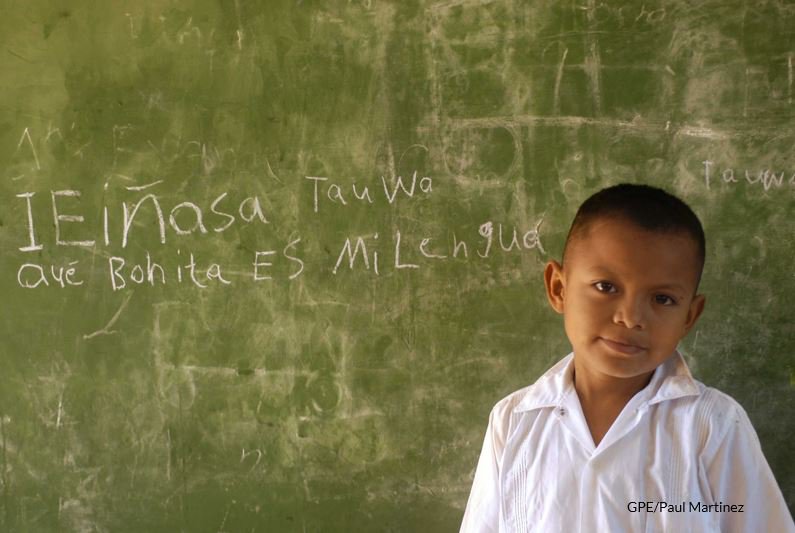 IEiñasa TauWa
Qué Bonita ES Mi Lengua
GPE/Paul Martinez